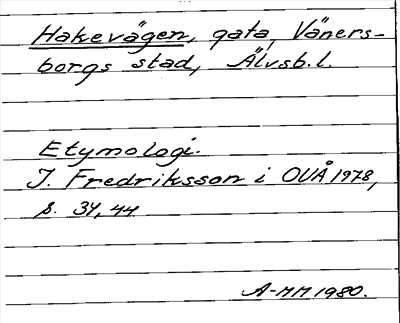 Hakevägen, gata, Väners-
borgs stad, Älvsb.l.
Etymologi.
I. Fredriksson i OUÅ 1978,
s. 34, 44
A-MM 1980.